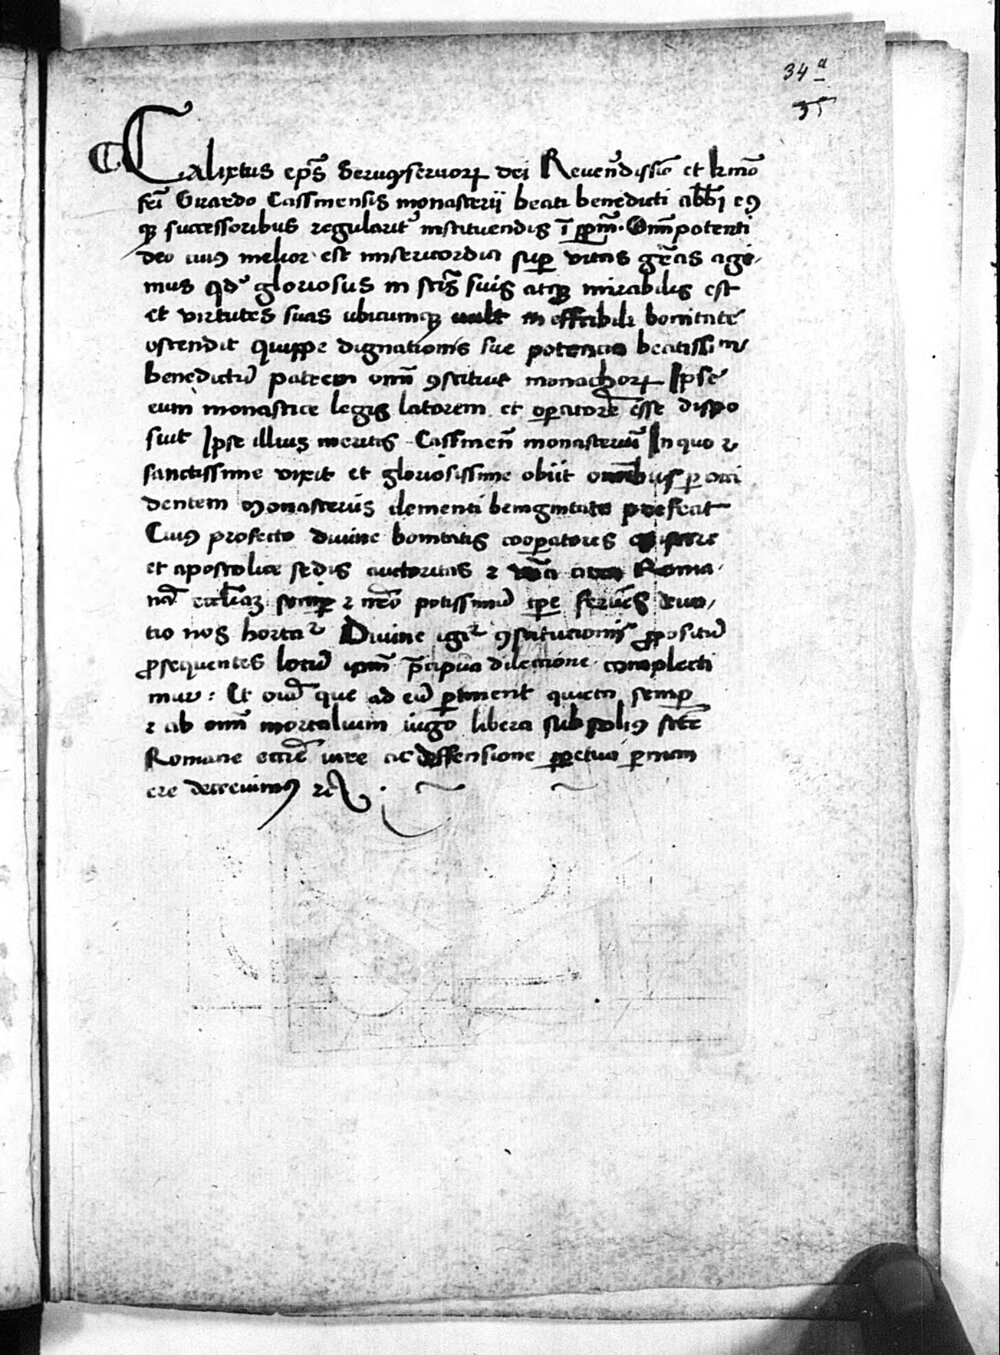 34ª
35
Calixtus ep̃s seruꝰ seruorꝝ dei Reuerẽdissio et kr̃mo
fr̃i Girardo Cassinensis monasterij beati benedicti abb̃i eiꝰ
qꝫ successoribus regularit̃ instituendis ĩ pp̃m. Om̃ipotenti
deo cuiꝰ melior est misericordia sup̲ uitas gr̃as agi,
mus qd̃ gloriosus in sc̃is suis atqꝫ mirabilis est
et virtutes suas ubicumqꝫ uult ineffabili bonitate
ostendit quippe dignationis sue potencia beatissim
benedictũ patrem om̃i ꝯstituit monachorꝝ Ipse
eum monastice legis latorem et op̲atorẽ esse dispo
suit Ipse illius meritis Cassinen̄ monasteriũ In quo ⁊
sanctissime vixit et gloriosissime obiit omnibus p̲ occi
dentem Monasteriis clementi benignitate prefecit
Cuiꝰ profecto diuine bonitatis cooperatores
et apostolice sedis auctoritas ⁊ Roma,
nã eccl̃iaꝫ semp̲ ⁊ potissimũ tp̃e deuo,
tio nos hortaꝛ̃ Diuine igiꝛ̃ ꝯstitucionis ꝓpositũ
ꝓsequentes locũ ip̃m p̃cipua dilectione complecti
mur: Et oĩa que ad eũ p̲tinent quieta semp̲
⁊ ab om̃i mortalium iugo libera sub soliꝰ sc̃te
Romane eccl̃ie iure ac deffensione p̲petua p̲man
ere decreuimꝰ ⁊cͣ